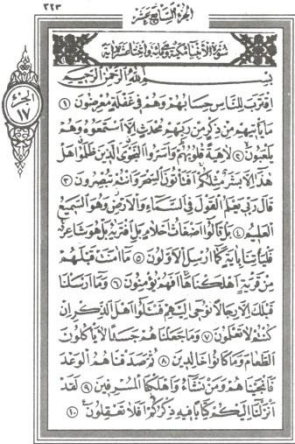 ٣٢٣
الجزء السابع عشر
سورة الأنبياء مكية
الجزء
١٧
بسم الله الرحمن الرحيم
اقترب للناس حسابهم وهم في غفلة معرضون ١
ما يأتيهم من ذكر من ربهم محدث إلا استمعوه وهم
يلعبون ٢ لاهية قلوبهم وأسروا النجوى الذين ظلموا هل
هذا إلا بشر مثلكم أفتأتون السحر وأنتم تبصرون ٣
قال ربي يعلم القول في السماء والأرض وهو السميع
العليم ٤ بل قالوا أضغاث أحلام بل افتراه بل هو شاعر
فليأتنا بآية كما أرسل الأولون ٥ ما آمنت قبلهم
من قرية أهلكناها أفهم يؤمنون ٦ وما أرسلنا
قبلك إلا رجالا نوحي إليهم فسئلوا أهل الذكر إن
كنتم لا تعلمون ٧ وما جعلناهم جسدا لا يأكلون
الطعام وما كانوا خالدين ٨ ثم صدقناهم الوعد
فأنجيناهم ومن نشاء وأهلكنا المسرفين ٩ لقد
أنزلنا إليكم كتابا فيه ذكركم أفلا تعقلون ١٠